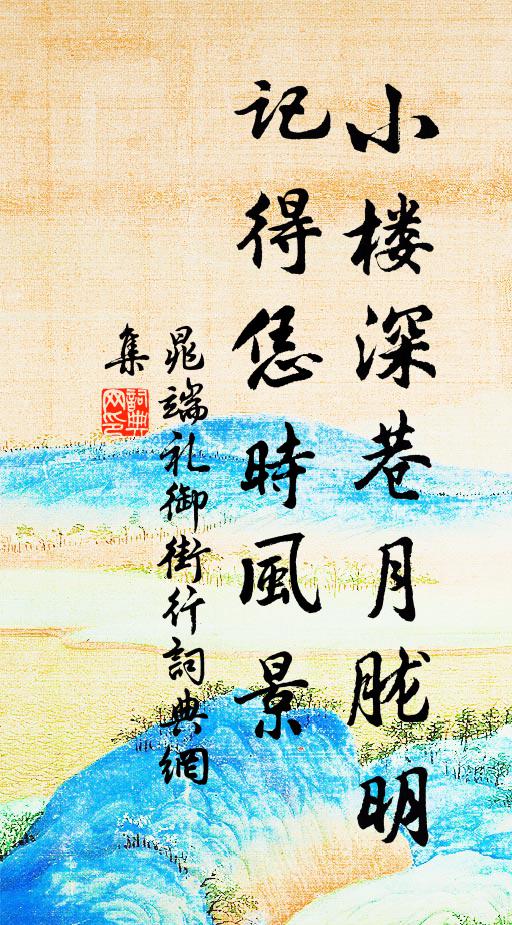 小楼深巷月胧明
记得恁時風景
晁端礼御街行詞典網
集
詞典
网印